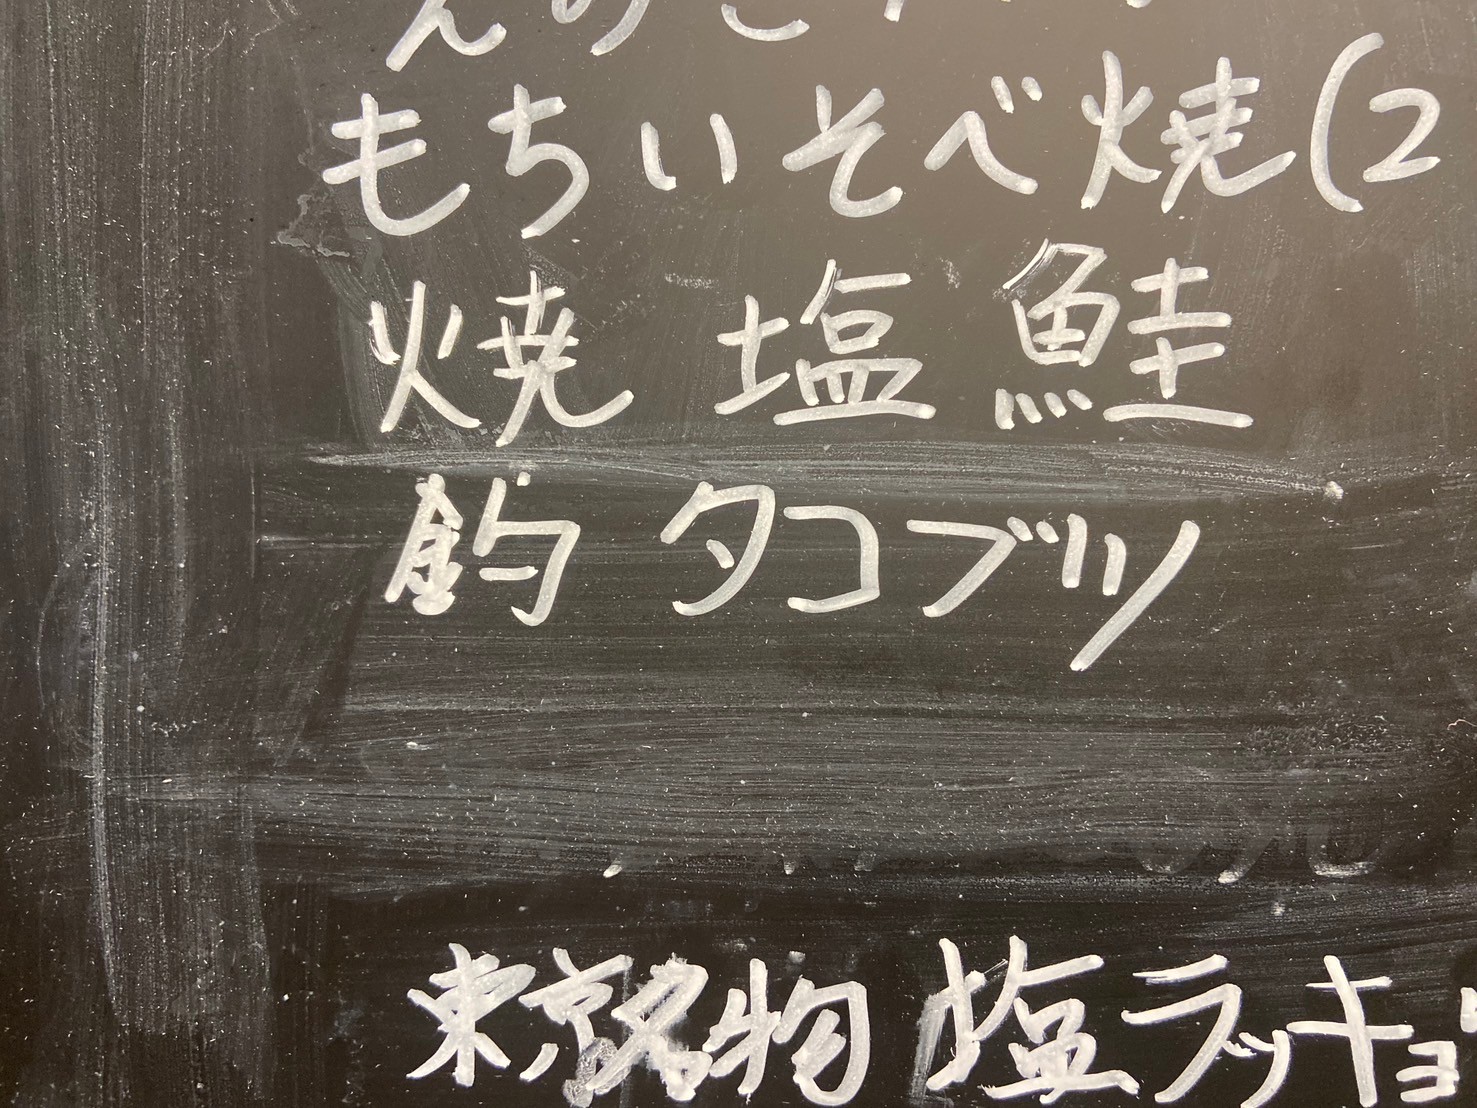 もちいそべ焼(2
焼 塩 鮭
釣 タコブツ
東京名物 塩ラッキョ